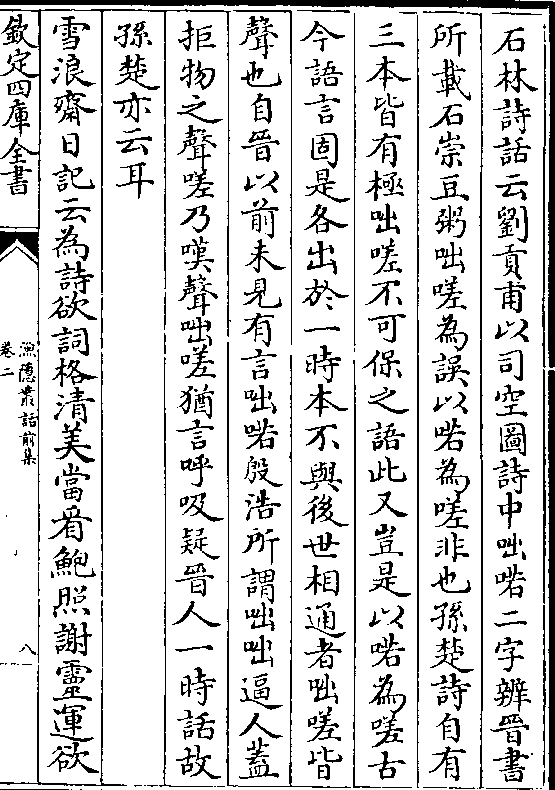 石林詩話云劉貢甫以司空圖詩中咄喏二字辨晉書
所載石崇豆粥咄嗟為誤以喏為嗟非也孫楚詩自有
三本皆有極咄嗟不可保之語此又豈是以喏為嗟古
今語言固是各出於一時本不與後世相通者咄嗟皆
聲也自晉以前未見有言咄喏殷浩所謂咄咄逼人蓋
拒物之聲嗟乃嘆聲咄嗟猶言呼吸疑晉人一時話故
孫楚亦云耳
雪浪齋日記云為詩欲詞格清美當看鮑照謝靈運欲
欽定四庫全書
漁隱叢話前集
卷二
八